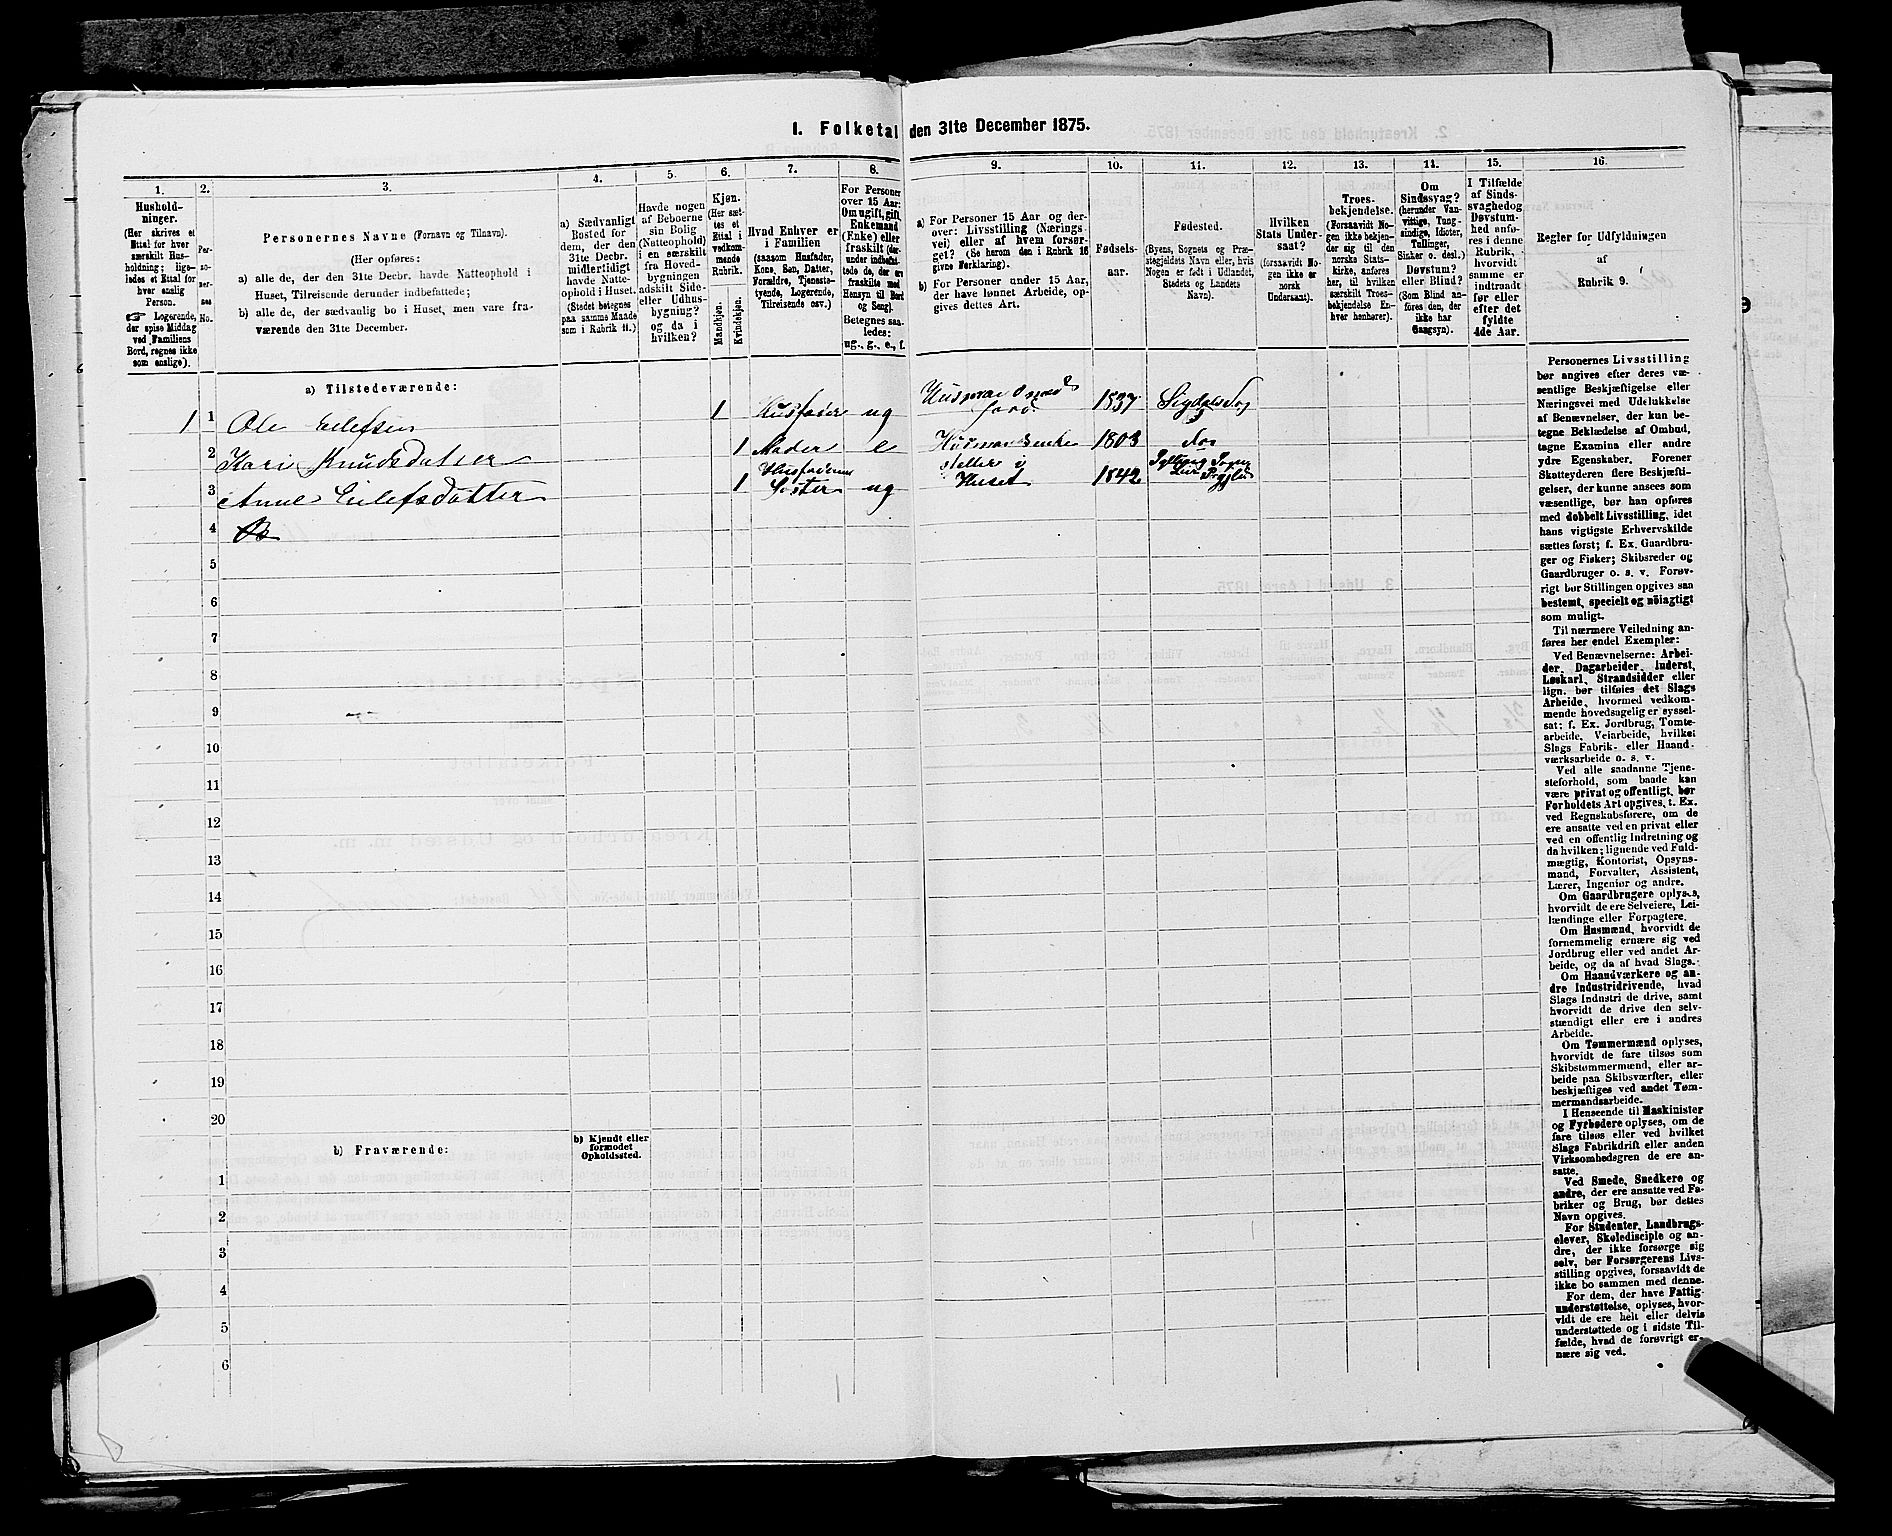 1. Folketal den 31te December 1875.
1. 2. 3. 4. 5. 6. 7. 8. 9. 10. 11. 12. 13. 14. 15. 16.
Hushold-
ninger.
(Her skrives et
Ettal for hver
særskilt Hus-
holdning; lige-
ledes et Ettal for
hver enslig
Person.
☞ Logerende,
der spise Middag
ved Familiens
Bord, regnes ikke
som enslige).
Per-
so-
ner-
nes
No.
Personernes Navne (Fornavn og Tilnavn).
(Her opføres:
a) alle de, der den 31te Decbr. havde Natteophold i
Huset, Tilreisende derunder indbefattede;
b) alle de, der sædvanlig bo i Huset, men vare fra-
værende den 31te December.
a) Sædvanligt
Bosted for
dem, der den
31te Decbr.
midlertidigt
havde Natte-
ophold i Huset.
(Stedet betegnes
paa samme Maade
som i Rubrik 11.)
Havde nogen
af Beboerne
sin Bolig
(Natteophold)
i en særskilt
fra Hoved-
bygningen
adskilt Side-
eller Udhus-
bygning?
og da i
hvilken?
Kjøn.
(Her sæt-
tes et
Ettal i
vedkom-
mende
Rubrik.
Mandkjøn.
Kvindekjøn.
Hvad Enhver er
i Familien
(saasom Husfader,
Kone, Søn, Datter,
Forældre, Tjeneste-
tyende, Logerende,
Tilreisende osv.)
For Personer
over 15 Aar:
Om ugift, gift,
Enkemand
(Enke) eller
fraskilt (der-
under indbefat-
tede de, der ere
fraskilte med
Hensyn til Bord
og Seng).
Betegnes saa-
ledes:
ug., g., e., f.
a) For Personer 15 Aar og der-
over: Livsstilling (Nærings-
vei) eller af hvem forsør-
get? (Se herom den i Rubrik 16
givne Forklaring).
b) For Personer under 15 Aar,
der have lønnet Arbeide, op-
gives dettes Art.
Fødsels-
aar.
Fødested.
(Byens, Sognets og Præ-
stegjeldets Navn eller, hvis
Nogen er født i Udlandet,
Stedets og Landets
Navn).
Hvilken
Stats Under-
saat?
(forsaavidt No-
gen ikke er
norsk
Undersaat).
Troes-
bekjendelse.
(Forsaavidt No-
gen ikke bekjen-
der sig til den
norske Stats-
kirke, anføres
her, til hvilken
særskilt Troes-
bekjendelse En-
hver henhører).
Om
Sindssvag?
(herunder Van-
vittige, Tung-
sindige, Idioter,
Tullinger,
Sinker o. desl.)
Døvstum?
eller Blind?
(Som Blind an-
føres den, der
ikke har
Gangsyn).
I Tilfælde
af Sinds-
svaghed og
Døvstum-
hed anfø-
res i denne
Rubrik,
hvorvidt
samme er
indtraadt
før eller
efter det
fyldte
4de Aar.
Regler for Udfyldningen
af
Rubrik 9.
a) Tilstedeværende:
1 1 Ole Eilefsen 1 Husfader ug Husmand med Jord 1837 Sigdals Sog
2 Kari Knudsdatter 1 Moder e Husmandsenke 1803 do
3 Anne Eilefsdatter 1 Husfaderens Søster ug steller i Huset 1842
4
5
6
7
8
9
10
11
12
13
14
15
16
17
18
19
20
b) Fraværende:
b) Kjendt eller
formodet
Opholdssted.
1
2
3
4
5
6
Personernes Livsstilling
bør angives efter deres væ-
sentlige Beskjæftigelse eller
Næringsvei med Udelukkelse
af Benævnelser, der kun be-
tegne Beklædelse af Ombud,
tagne Examina eller andre
ydre Egenskaber. Forener
Skatteyderen flere Beskjæfti-
gelser, der kunne ansees som
væsentlige, bør han opføres
med dobbelt Livsstilling, idet
hans vigtigste Erhvervskilde
sættes først; f. Ex. Gaardbru-
ger og Fisker; Skibsreder og
Gaardbruger o. s. v. Forøv-
rigt bør Stillingen opgives saa
bestemt, specielt og nøiagtigt
som muligt.
Til nærmere Veiledning an-
føres her endel Exempler:
Ved Benævnelserne: Arbei-
der, Dagarbeider, Inderst,
Løskarl, Strandsidder eller
lign. bør tilføies det Slags
Arbeide, hvormed vedkom-
mende hovedsagelig er syssel-
sat; f. Ex. Jordbrug, Tomte-
arbeide, Veiarbeide, hvilket
Slags Fabrik- eller Haand-
værksarbeide o. s. v.
Ved alle saadanne Tjene-
steforhold, som baade kan
være privat og offentligt, bør
Forholdets Art opgives, t. Ex.
ved Regnskabsførere, om de
ere ansatte ved en privat eller
ved en offentlig Indretning og
da hvilken; lignende ved Fuld-
mægtig, Kontorist, Opsyns-
mand, Forvalter, Assistent,
Lærer, Ingeniør og andre.
Om Gaardbrugere oplyses,
hvorvidt de ere Selveiere, Lei-
lændinge eller Forpagtere.
Om Husmænd, hvorvidt de
fornemmelig ernære sig ved
Jordbrug eller ved andet Ar-
beide, og da af hvad Slags.
Om Haandværkere og an-
dre Industridrivende, hvad
Slags Industri de drive, samt
hvorvidt de drive den selv-
stændigt eller ere i andres
Arbeide.
Om Tømmermænd oplyses,
hvorvidt de fare tilsøs som
Skibstømmermænd, eller ar-
beide paa Skibsværfter, eller
beskjæftiges ved andet Tøm-
mermandsarbeide.
I Henseende til Maskinister
og Fyrbødere oplyses, om de
fare tilsøs eller ved hvilket
Slags Fabrikdrift eller anden
Virksomhedsgren de ere an-
satte.
Ved Smede, Snedkere og
andre, der ere ansatte ved Fa-
briker og Brug, bør dettes
Navn opgives.
For Studenter, Landbrugs-
elever, Skoledisciple og an-
dre, der ikke forsørge sig
selv, bør Forsørgerens Livs-
stilling opgives, forsaavidt de
ikke bo sammen med denne.
For dem, der have Fattig-
understøttelse, oplyses, hvor-
vidt de ere helt eller delvis
understøttede og i sidste Til-
fælde, hvad de forøvrigt er-
nære sig ved.